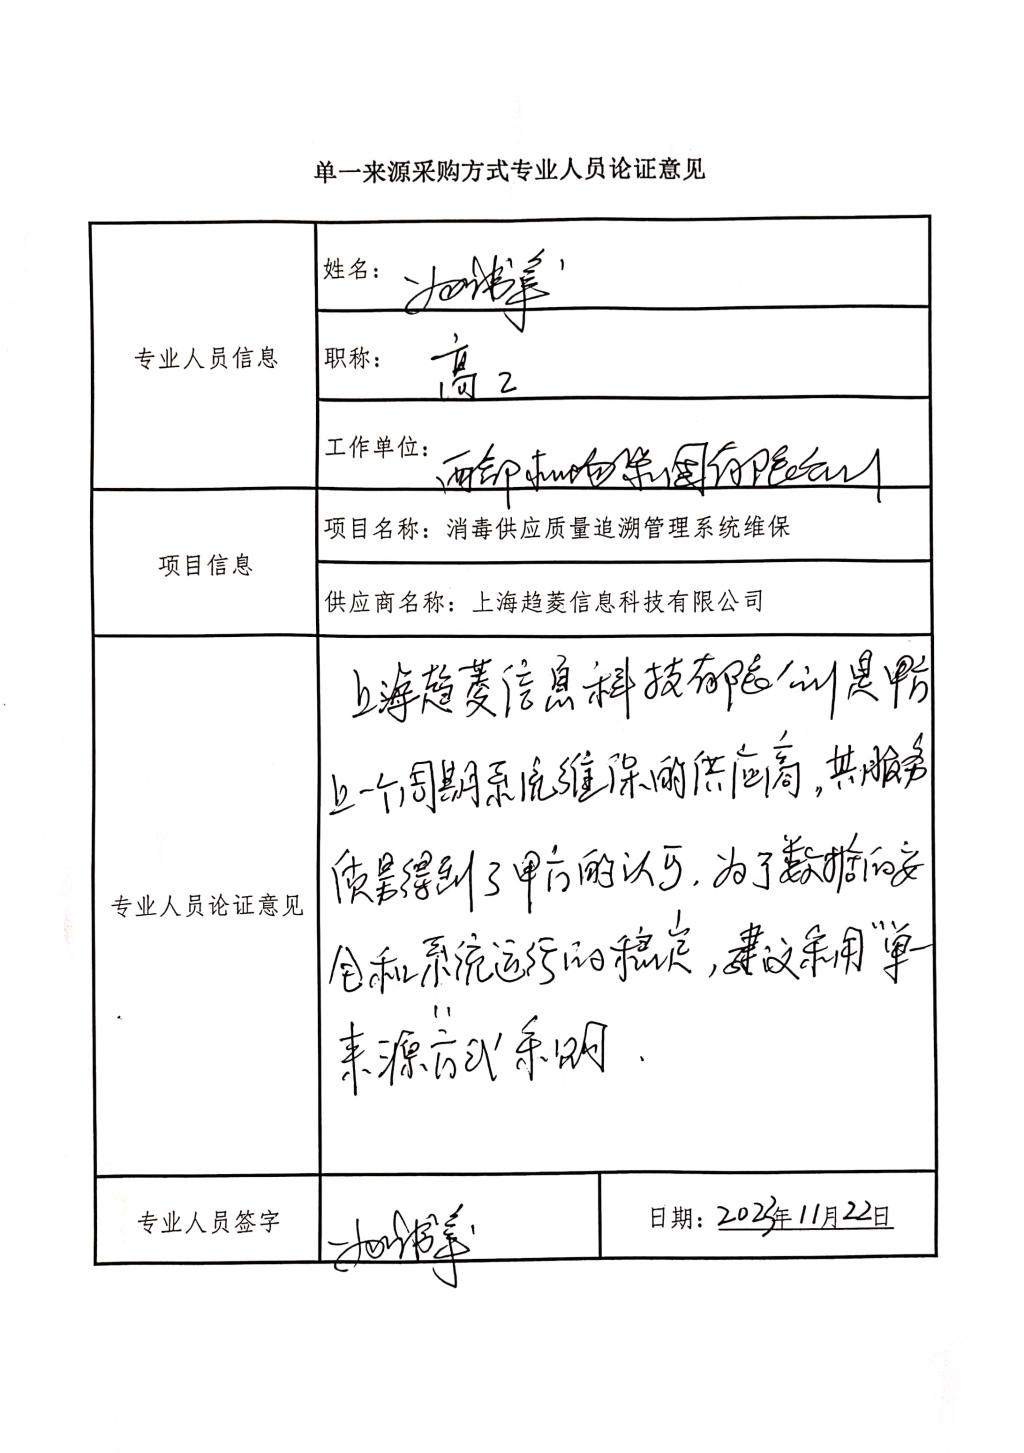 单一来源采购方式专业人员论证意见
专业人员信息
姓名：
职称：高工
工作单位：西部机场集团有限公司
项目信息
项目名称：消毒供应质量追溯管理系统维保
供应商名称：上海趋菱信息科技有限公司
专业人员论证意见
上海趋菱信息科技有限公司是甲方
上一个周期系统维保的供应商，其服务
质量得到了甲方的认可，为了数据的安
全和系统运行的稳定，建议采用“单一
来源”方式采购.
专业人员签字
日期：2023年11月22日